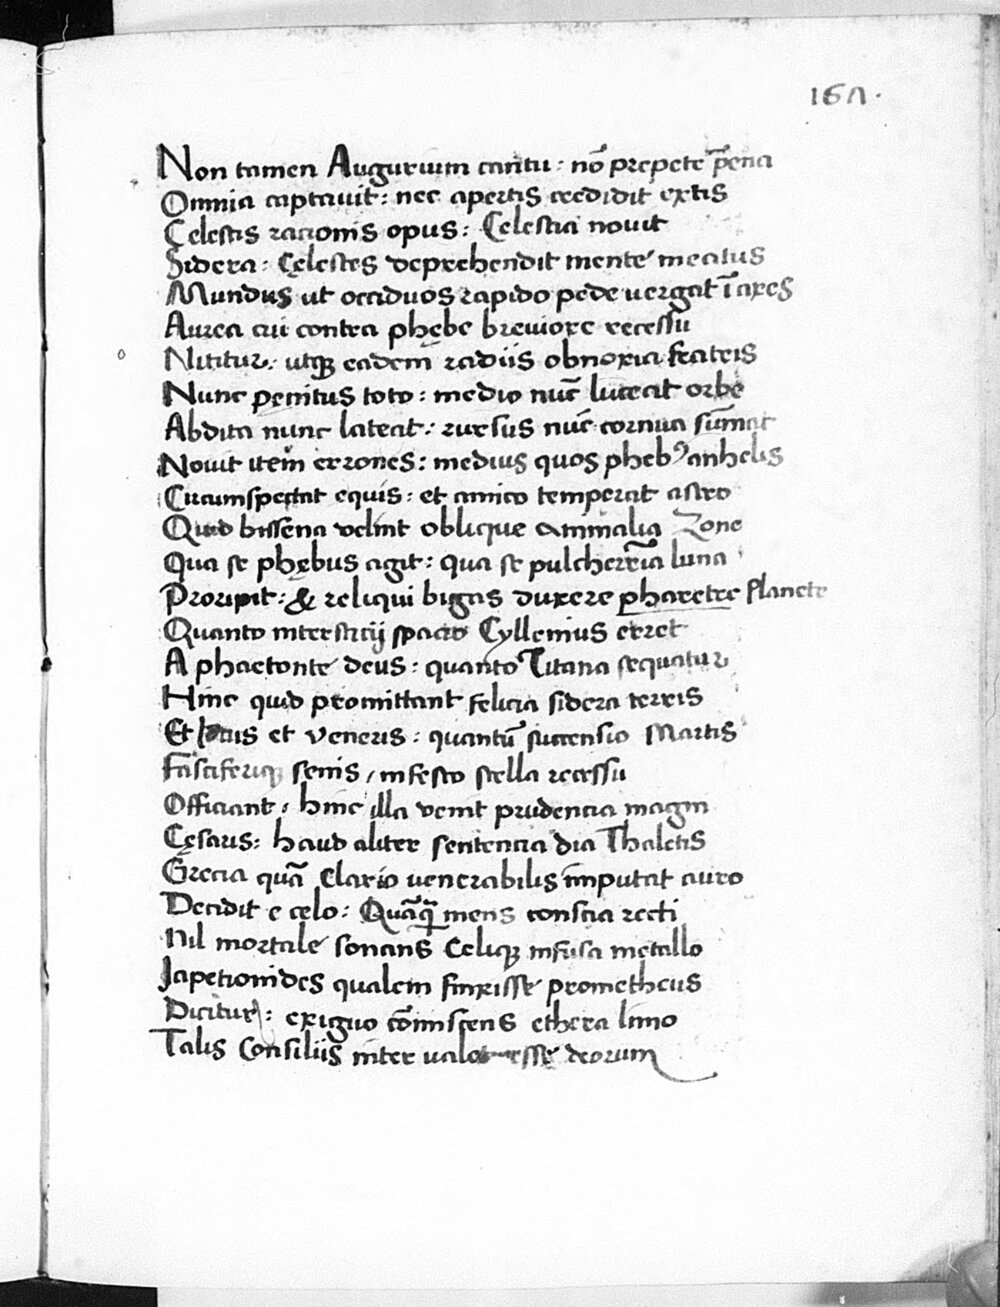 167.
Non tamen Augurium cantu: nō prepete p̄ena
Omnia captavit: nec apertis credidit extis
Celestis racionis opus: Celestia novit
Sidera: Celestes deprehendit mente meatus
Mundus ut occiduos rapido pede vergat ī axes
Aurea cui contra phębe breviore recessu
Nititur: utqꝫ eadem radiis obnoxia fratris
Nunc penitus toto: medio nūc luceat orbe
Abdita nunc lateat: rursus nūc cornua sūmat
Novit item errones: medius quos phebꝰ anhelis
Circumspectat equis: et amico temperat astro
Quid bissena velint oblique animalia Zone
Qua se phębus agit: qua se pulcherr̄ia luna
Proripit: & reliqui bigas duxere pharetre Planete
Quanto interstitij spacio Cyllenius erret
A phaetonte deus: quanto Titana sequatur
Hinc quid promittant felicia sidera terris
Et Iovis et veneris: quantū succensio Martis
Falciferiqꝫ senis, infesto stella recessu
Officiant, hinc illa venit prudencia magni
Cęsaris: haud aliter sentencia dia Thaletis
Grecia quā Clario venerabilis īmputat auro
Decidit e celo: Quāqꝫ mens conscia recti
Nil mortale sonans Celiqꝫ infusa metallo
Iapetionides qualem finxisse prometheus
Dicitur: exiguo cōmiscens ethera limo
Talis Consiliis inter esse deorum